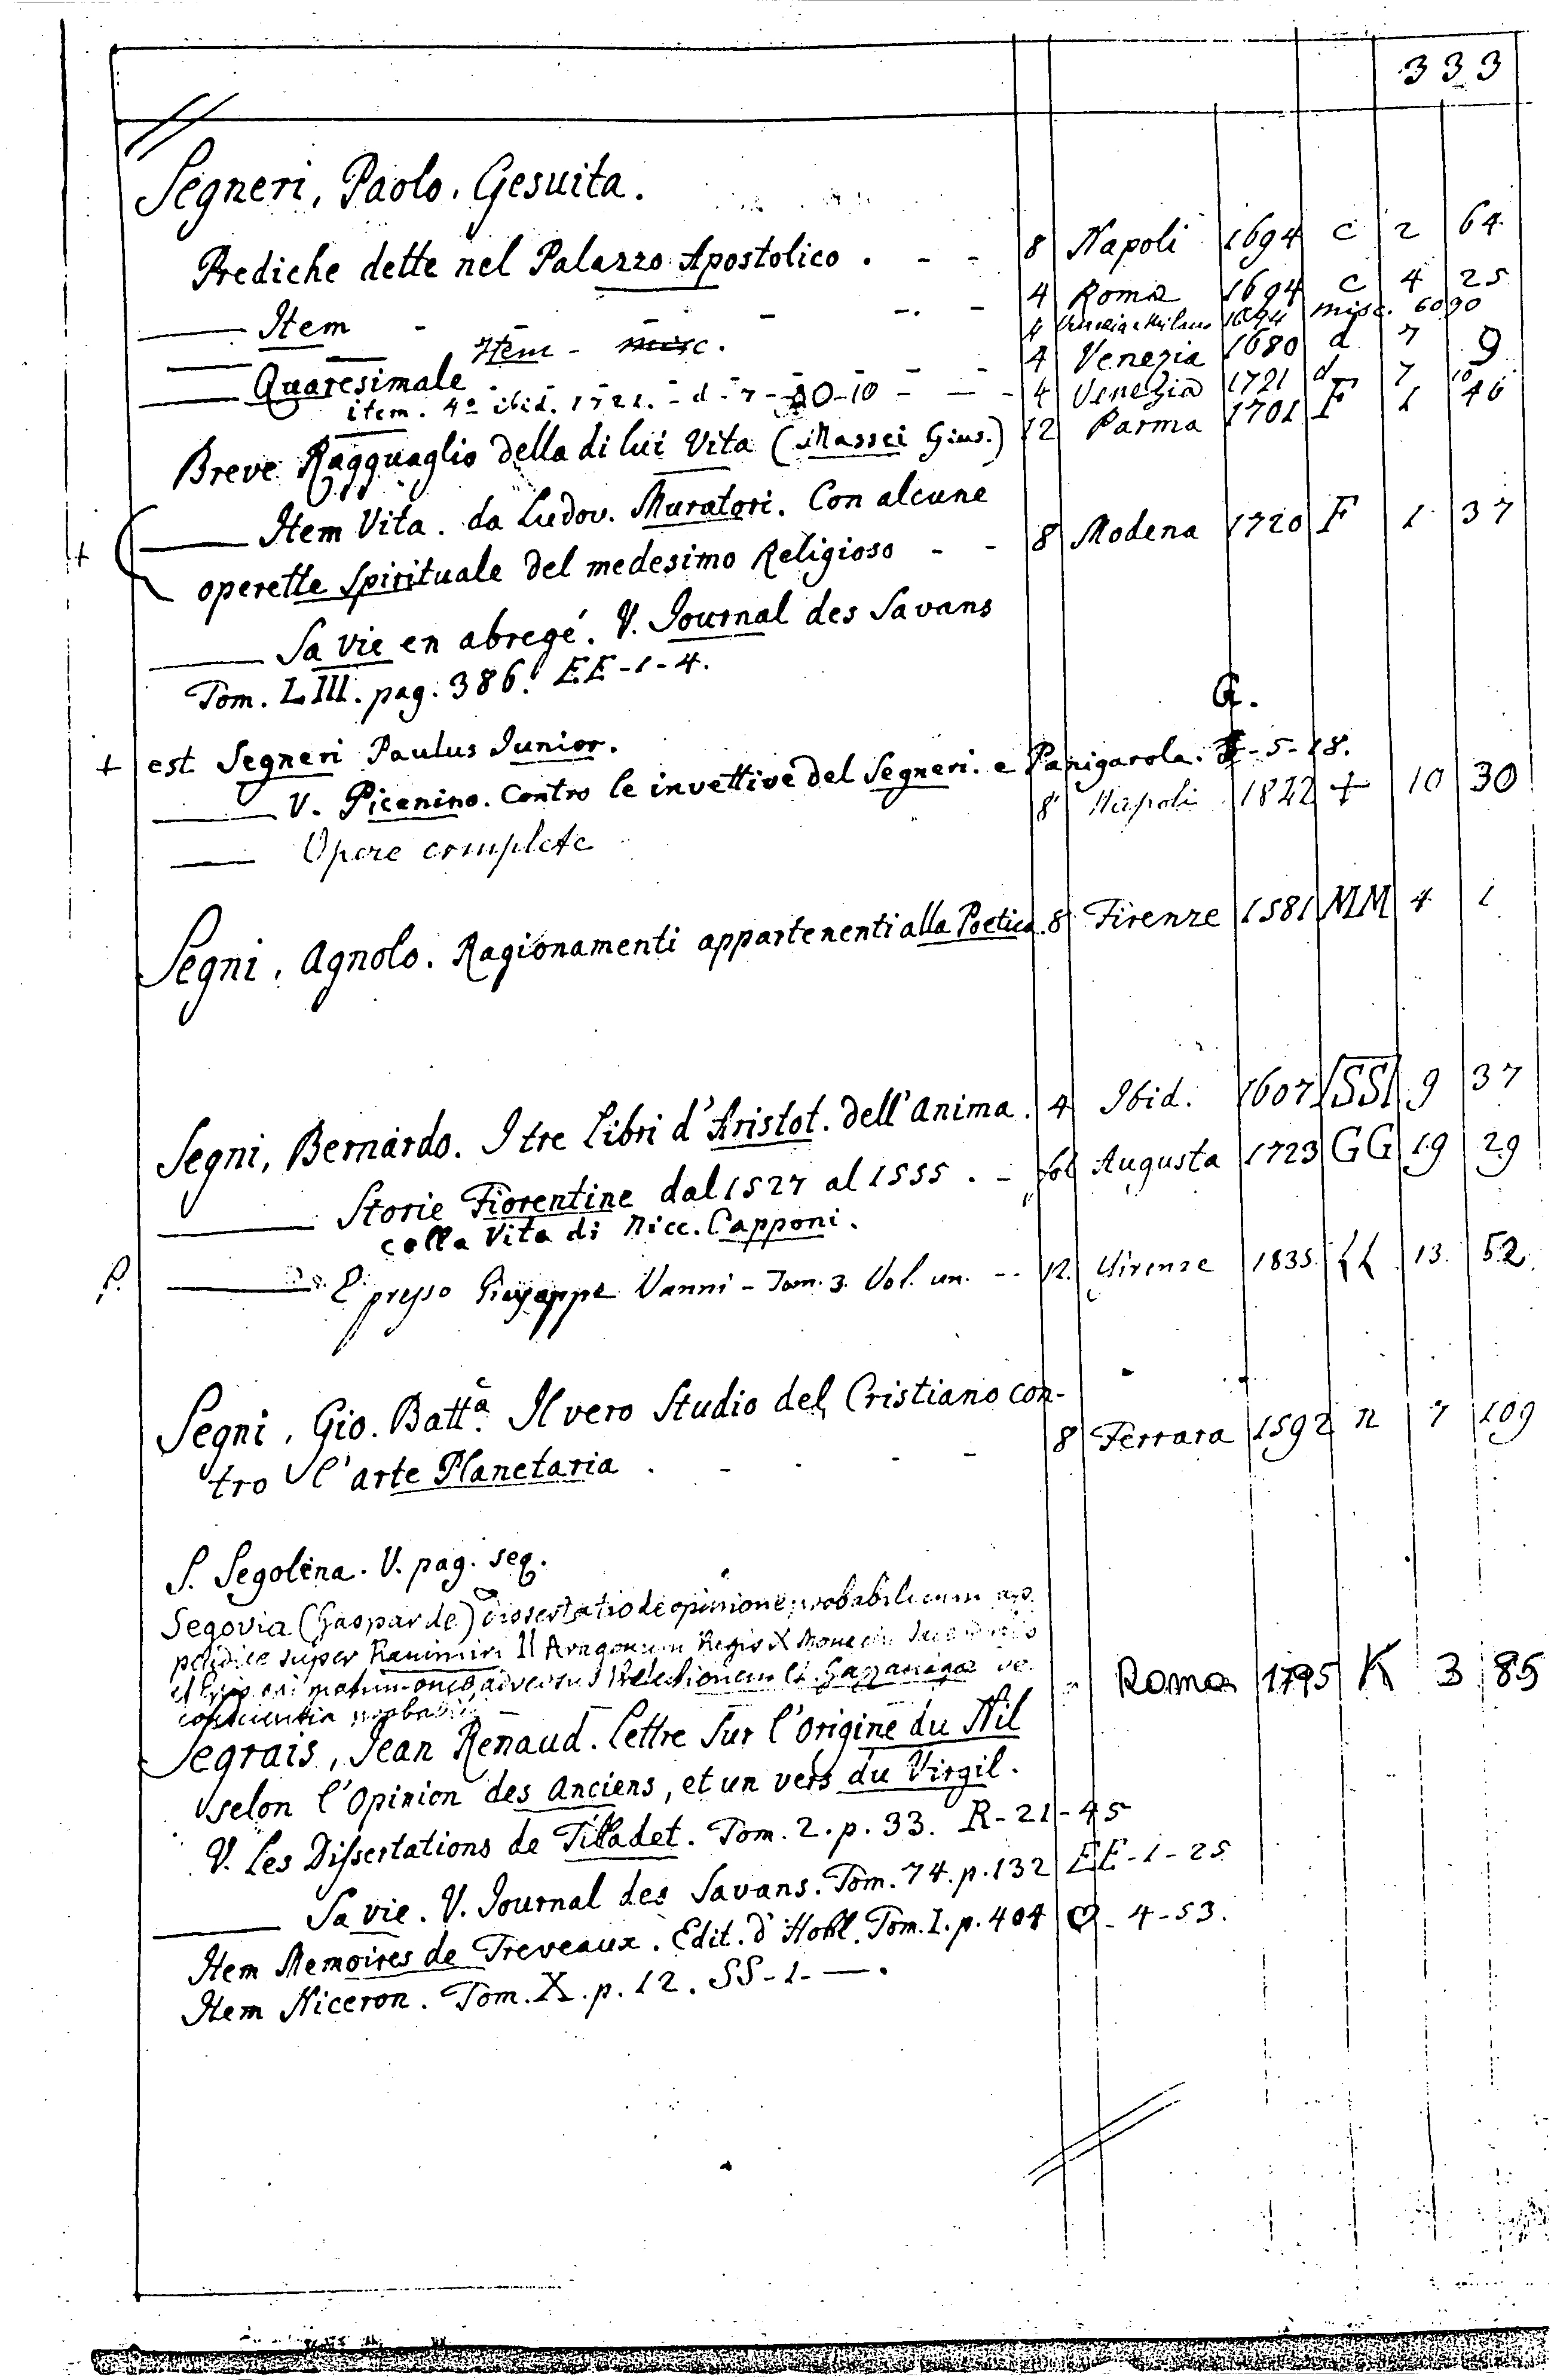 333
Segneri, Paolo. Gesuita.
Prediche dette nel Palazzo Apostolico . - - 8 Napoli 1694 c 2 64
Item - - - - - 4 Roma 1694 c 4 25
Item - misc. 4 Venezia e Milano 1694 misc. 6090
Quaresimale - - - - 4 Venezia 1680 d 7 9
item. 4º ibid. 1721. - d - 7 - 10 - 10 - - - 4 Venezia 1721 d 7 10
Breve Ragguaglio della di lui Vita (Massei Gius.) 12 Parma 1701 F 1 46
Item Vita. da Ludov. Muratori. Con alcune
+ operette spirituale del medesimo Religioso - - 8 Modena 1720 F 1 37
Sa vie en abregé. V. Journal des Savans
Tom. LIII. pag. 386. EE-1-4.
+ est Segneri Paulus Junior.
G.
V. Picenino. Contro le invettive del Segneri. e Panigarola. -5-18.
Opere complete 8 Napoli 1822 + 10 30
Segni, Agnolo. Ragionamenti appartenenti alla Poetica. 8 Firenze 1581 MM 4 1
Segni, Bernardo. I tre Libri d'Aristot. dell'anima. 4 Ibid. 1607 SS 9 37
Storie Fiorentine dal 1527 al 1555. - fol Augusta 1723 GG 19 29
colla Vita di Nicc. Capponi.
E presso Giuseppe Vanni - Tom. 3. Vol. un. -- 12. Firenze 1835. LL 13. 52.
Segni, Gio. Battª. Il vero Studio del Cristiano con-
tro l'arte Planetaria . - - - - 8 Ferrara 1592 n 7 109
S. Segolena. V. pag. seq.
Segovia (Gaspar de) Dissertatio de opinione probabili cum
super Ranimiri II Aragonum Regis
Roma 1795 K 3 85
Segrais, Jean Renaud. Lettre sur l'origine du Nil
selon l'Opinion des anciens, et un vers du Virgil.
V. Les Dissertations de Tilladet. Tom. 2. p. 33. R-21-45
Sa vie. V. Journal des Savans. Tom. 74. p. 132 EE-1-25
Item Memoires de Treveaux. Edit. d'Holl. Tom. I. p. 404 ♡-4-53.
Item Niceron. Tom. X. p. 12. SS-1-—.